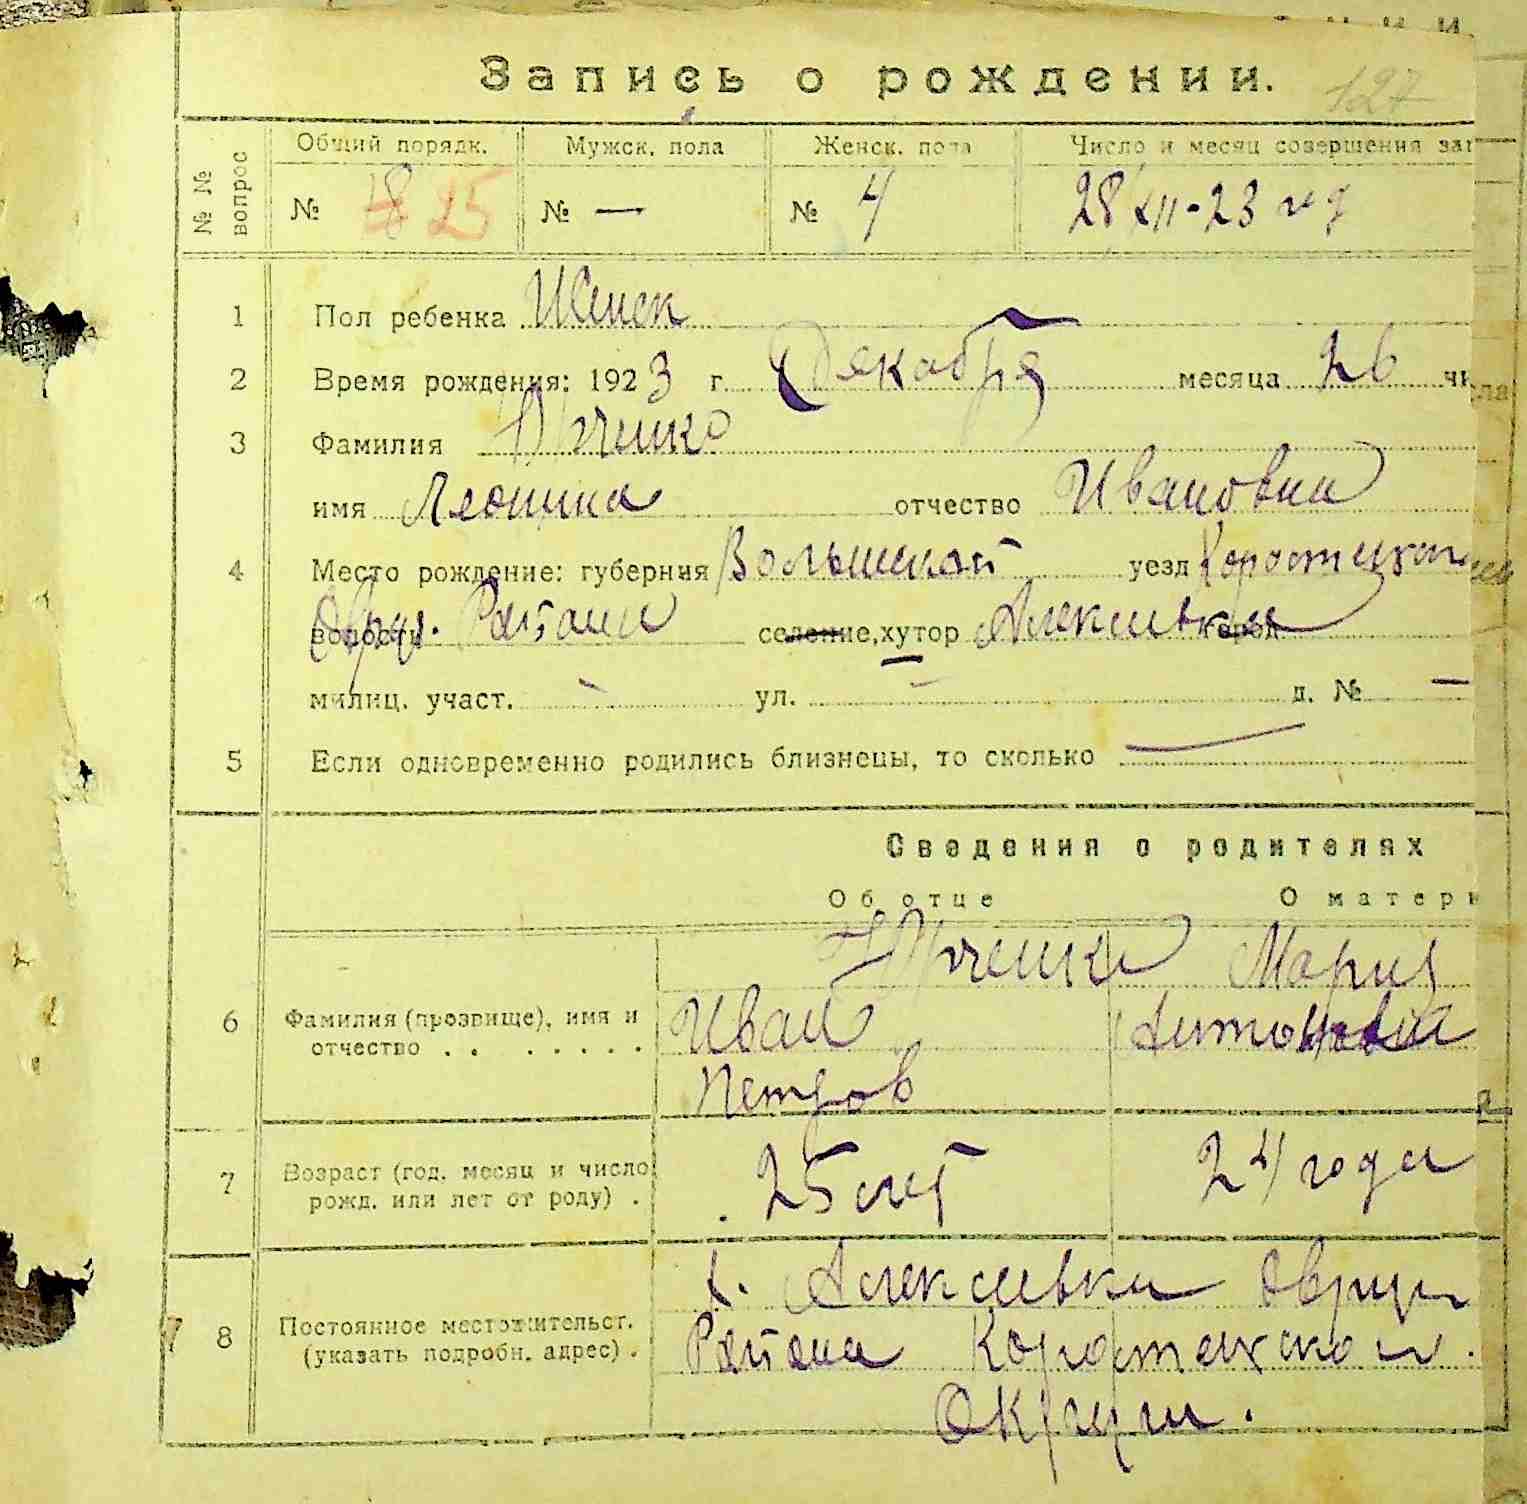 Запись о рождении.
127
№ № вопрос
Общий порядк. Мужск. пола Женск. пола Число и месяц совершения зап
№ 18 25 № — № 4 28 XII-23 год
1 Пол ребенка Женск
2 Время рождения: 1923 г. Декабря месяца 26 числа
3 Фамилия Юрченко
имя отчество Ивановна
4 Место рождение: губерния Волынской уезд Коростецкого
волость Овруч. Района селение, хутор Алексеевка город
милиц. участ. - ул. - д. № —
5 Если одновременно родились близнецы, то сколько —
Сведения о родителях
Об отце О матери
Юрченко Мария
6 Фамилия (прозвище), имя и Иван Антоновна
отчество . . . . . . . Петров
7 Возраст (год. месяц и число 25 лет 24 года
рожд. или лет от роду) .
х. Алексеевка Овруч
8 Постоянное местожительст. Района Коростецкого
(указать подробн. адрес) .
Округи.